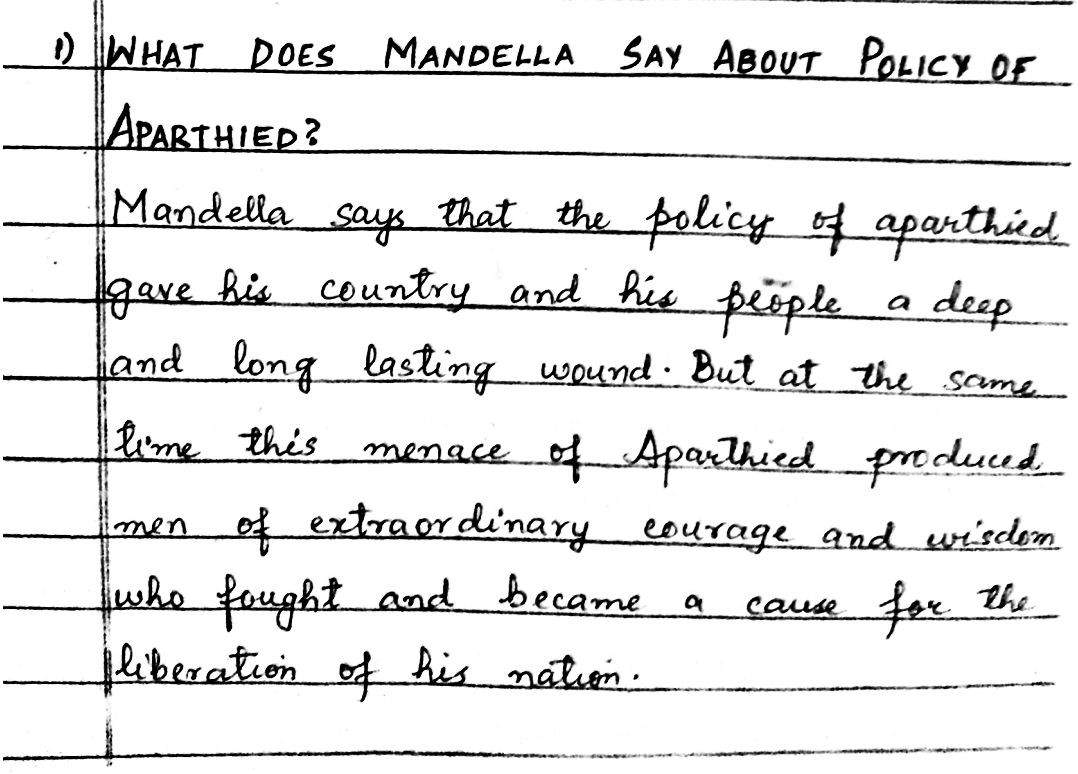 1) WHAT DOES MANDELLA SAY ABOUT POLICY OF
APARTHIED?
Mandella says that the policy of aparthied
gave his country and his people a deep
and long lasting wound. But at the same
time this menace of Aparthied produced
men of extraordinary courage and wisdom
who fought and became a cause for the
liberation of his nation.